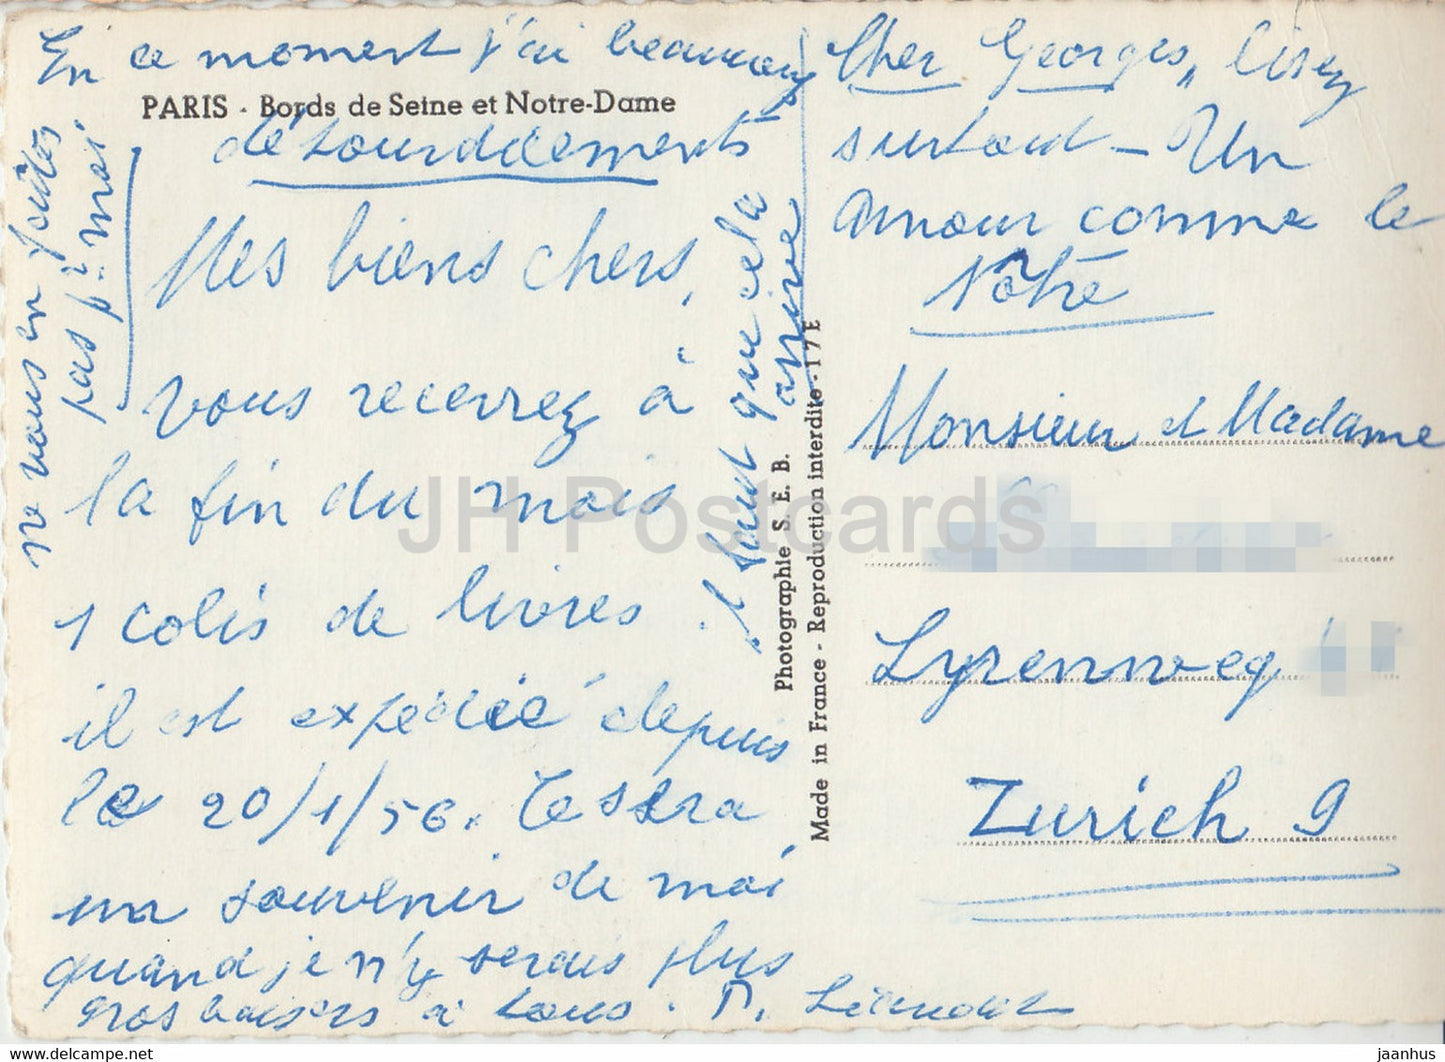 En ce moment j'ai beaucoup
d'étourdissements
PARIS - Bords de Seine et Notre-Dame
Mes biens chers,
vous recevrez à
la fin du mois
1 colis de livres.
il est expédié depuis
le 20/1/56. Ce sera
un souvenir de moi
quand je n'y serais plus
gros baisers à tous.
ne vous en faites
pas pr moi
il faut que cela
arrive
Photographie S. E. B.
Made in France - Reproduction interdite - 17 E
Cher Georges, lisez
surtout - Un
Amour comme le
Nôtre
Monsieur et Madame
Lyrenweg
Zurich 9
JH Postcards
jaanhus © HipPostcard.com